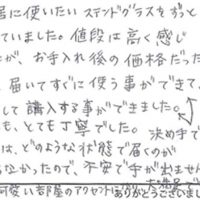 居に使いたいステンドグラスをずっと
ていました。値段は高く感じ
が、お手入れ後の価格だった
届いてすぐに使う事ができて、
して購入する事ができました。
も、とても丁寧でした。 決め手で
は、どのような状態で届くのが
らなかったので、不安で手が出ません
可愛い部屋のアクセントに
ありがとうございまし